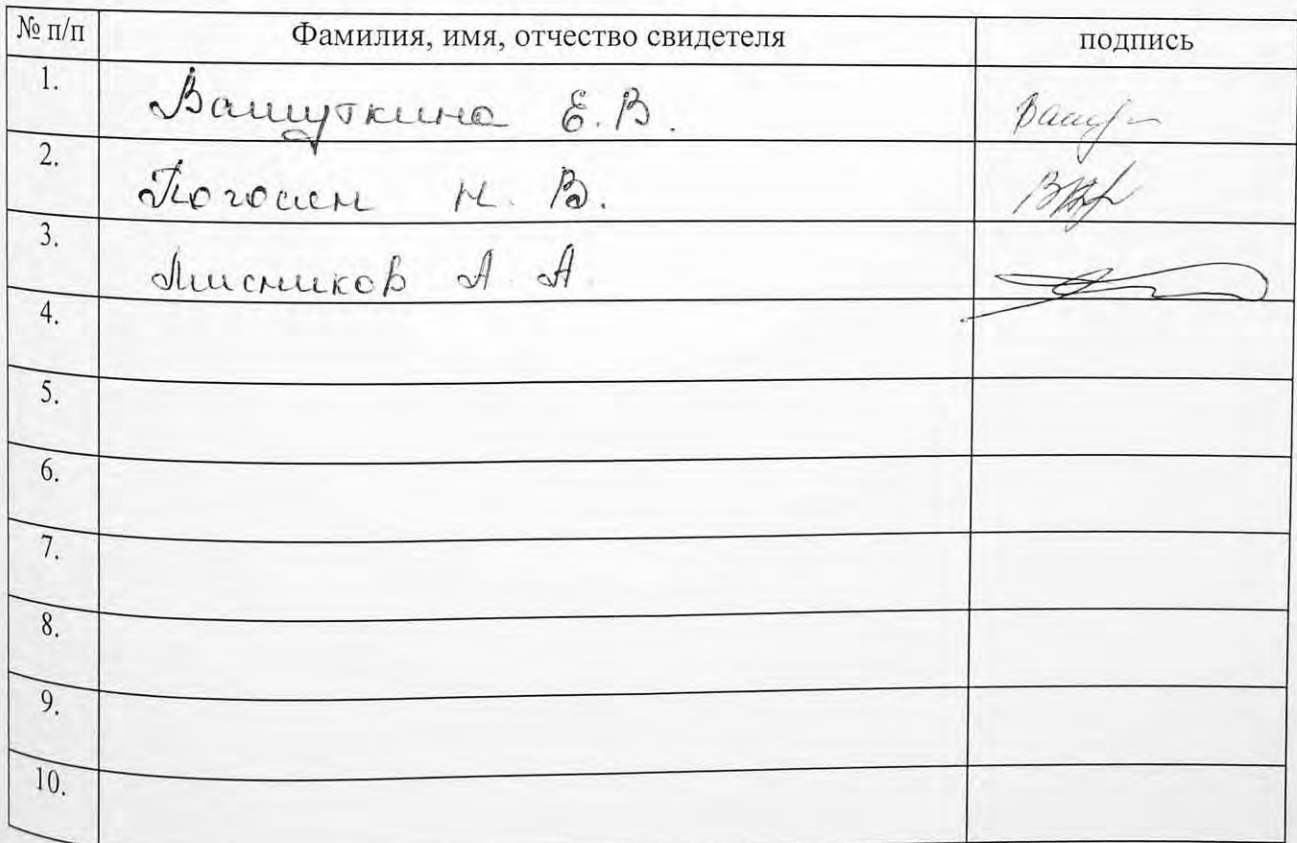 № п/п Фамилия, имя, отчество свидетеля подпись
1. Вашуткина Е. В.
2. Погосян Н. В.
3. Лисников А. А.
4.
5.
6.
7.
8.
9.
10.